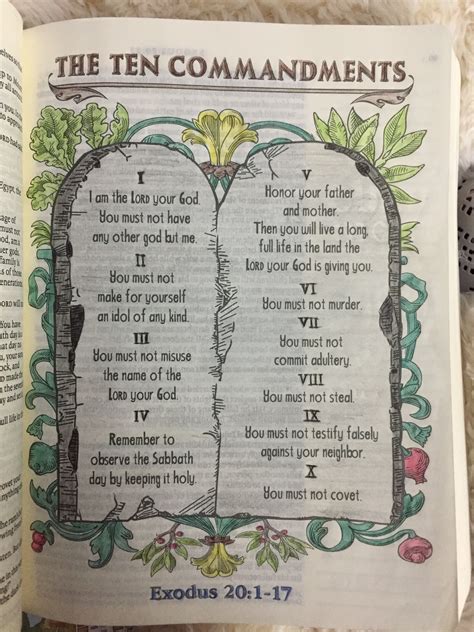 THE TEN COMMANDMENTS
I
I am the LORD your God.
You must not have
any other god but me.
II
You must not
make for yourself
an idol of any kind.
III
You must not misuse
the name of the
LORD your God.
IV
Remember to
observe the Sabbath
day by keeping it holy.
V
Honor your father
and mother.
Then you will live a long,
full life in the land the
LORD your God is giving you.
VI
You must not murder.
VII
You must not
commit adultery.
VIII
You must not steal.
IX
You must not testify falsely
against your neighbor.
X
You must not covet.
Exodus 20:1-17